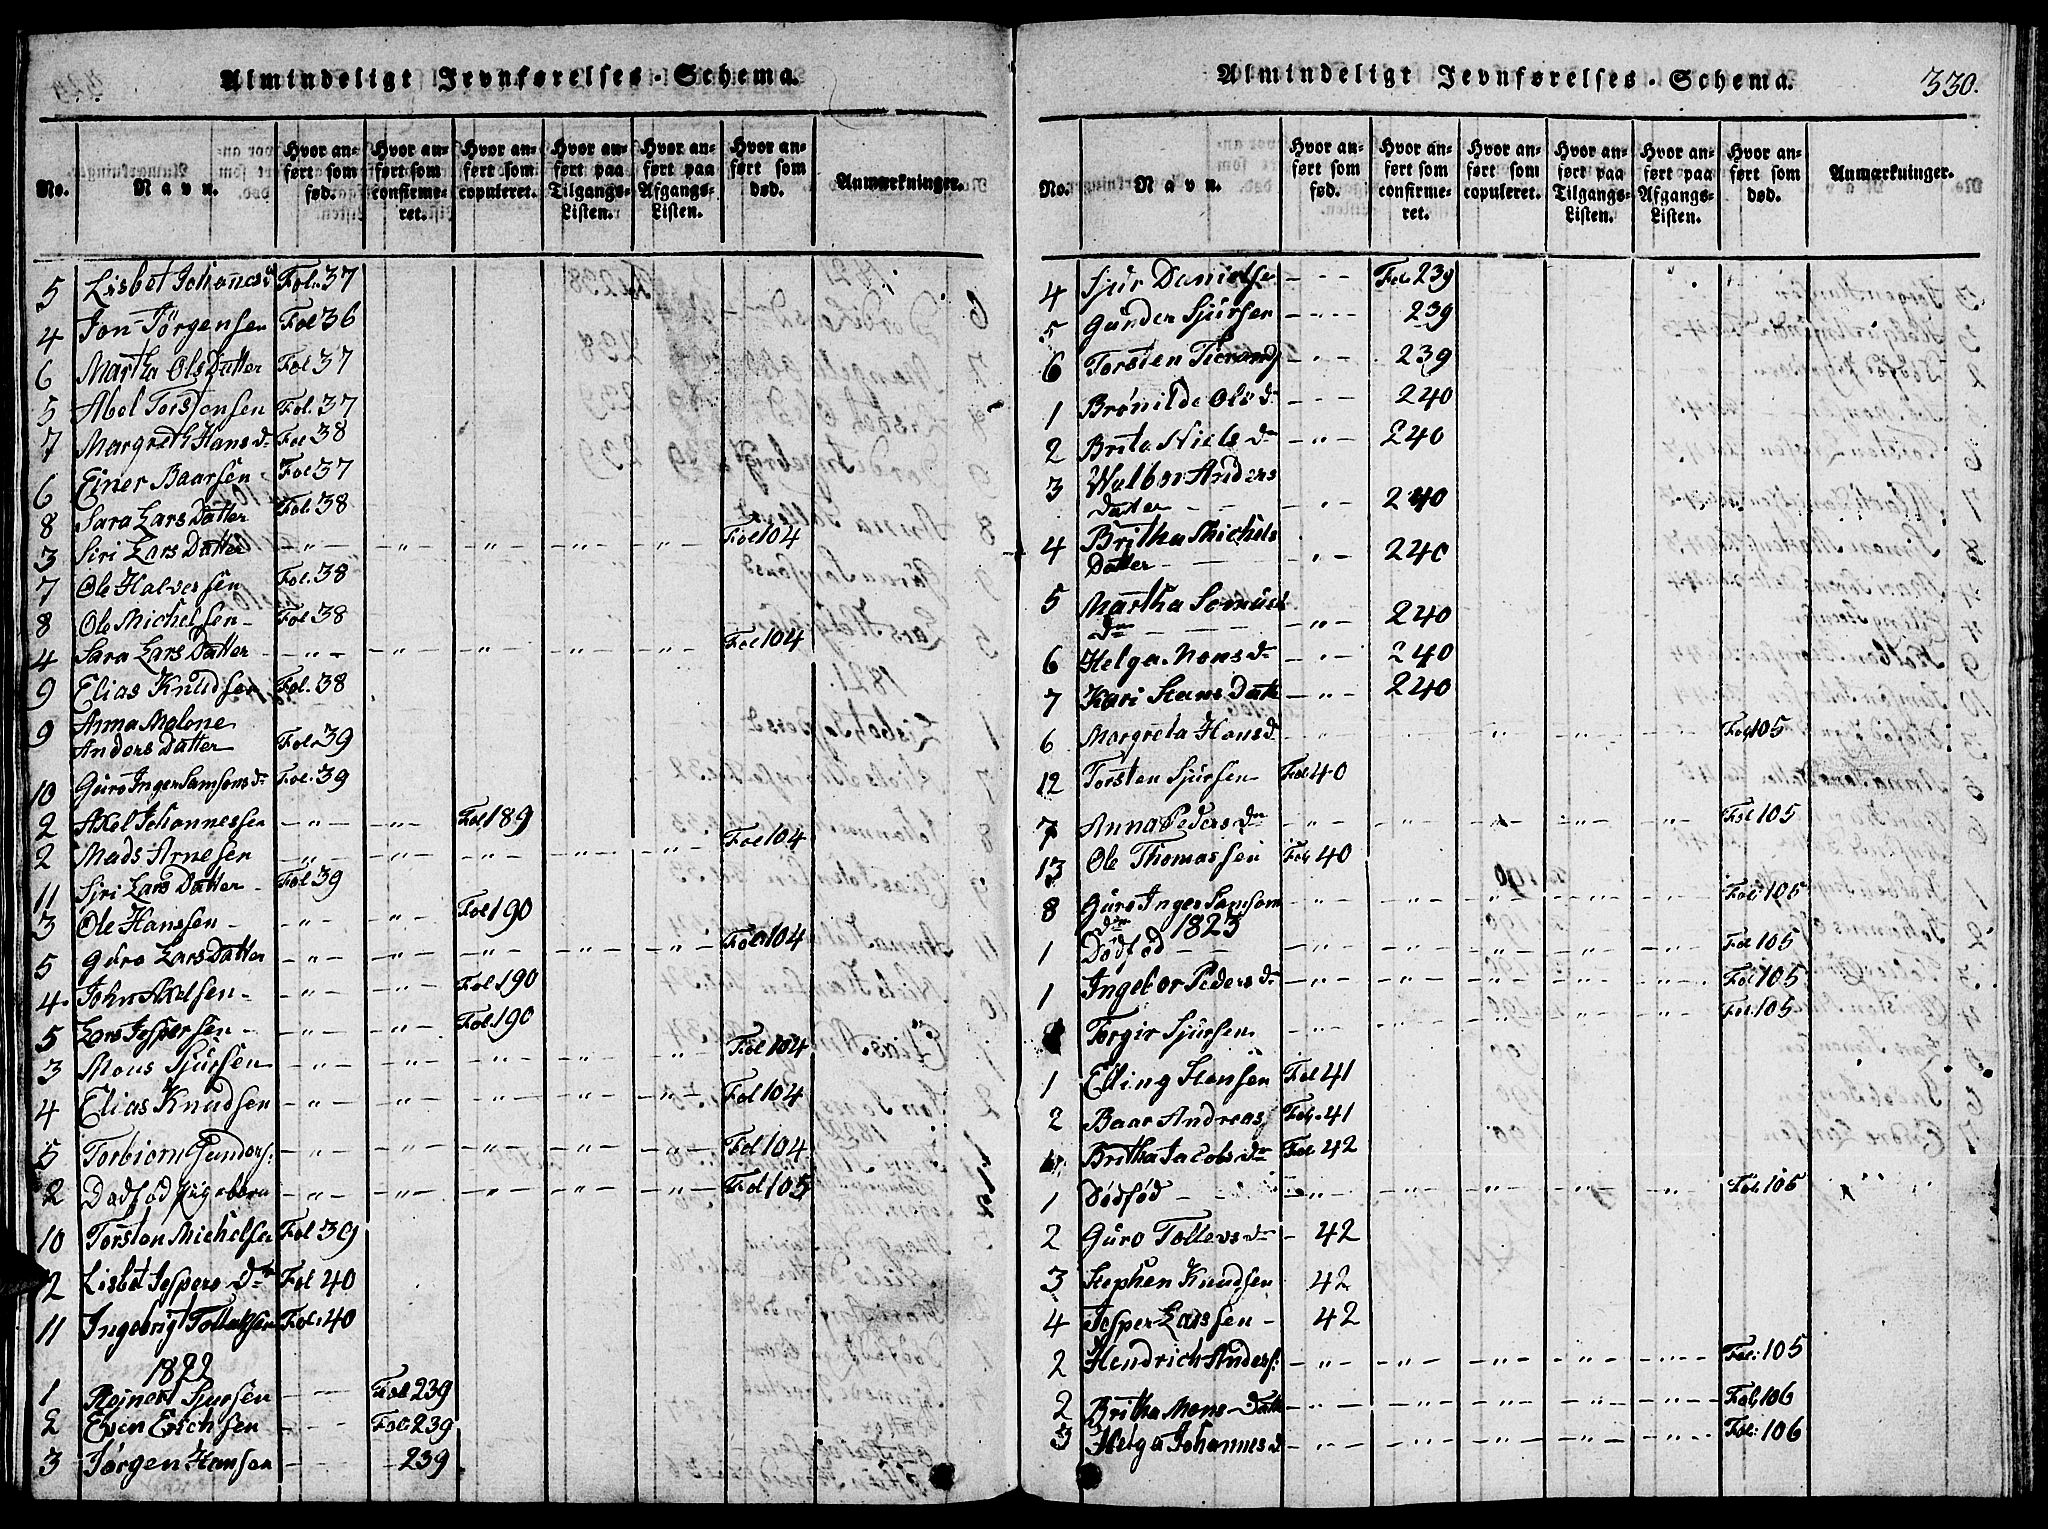 Almindeligt Jevnførelses-Schema.
No. Navn. Hvor anført som fød. Hvor anført som confirmeret. Hvor anført som copuleret. Hvor anført paa Tilgangs-Listen. Hvor anført paa Afgangs-Listen. Hvor anført som død. Anmærkninger.
5 Lisbet Johanesd Fol. 37
4 Jon Jörgensen Fol 36
6 Martha Ols Datter Fol 37
5 Abel Torstensen Fol. 37
7 Margreth Hans dr Fol 38
6 Einer Baarsen Fol 37
8 Sara Lars Datter Fol 38
3 Siri Lars Datter Fol 104
7 Ole Halversen Fol. 38
8 Ole Michelsen Fol 38
4 Sara Lars Datter Fol 104
9 Elias Knudsen Fol. 38
9 Anna Malene
Anders Datter Fol. 39
10 Guro Inger Samsons dr Fol. 39
2 Axel Johannessen Fol 189
2 Mads Arnesen Fol 104
11 Siri Lars Datter Fol 39
3 Ole Hanssen Fol 190
5 Guro Lars Datter Fol 104
4. John Axelsen Fol 190
5 Lars Jespersen Fol 190
3 Mons Sjursen Fol 104
4 Elias Knudsen Fol 104
5 Torbiorn Gunders: Fol 104
2 Dødfød Pigebarn Fol 105
10 Torsten Michelsen Fol 39
12 Lisbet Jespers Dr Fol 40
11 Ingebrigt Tollaksen Fol. 40
1822
1 Rejnert Sjursen Fol 239
2 Even Erichsen Fol 239
3 Jørgen Hansen 239
Almindeligt Jevnførelses-Schema. 330.
No. Navn. Hvor anført som fød. Hvor anført som confirmeret. Hvor anført som copuleret. Hvor anført paa Tilgangs-Listen. Hvor anført paa Afgangs-Listen. Hvor anført som død. Anmærkninger.
4 Sjur Danielse Fol. 239
5 Gunder Sjursen 239
6 Torsten 239
1 Brønilde Ols d. 240
2 Brita Niels dr 240
3 Wolbor Anders
Datter 240
4 Britha Michels
Datter 240
5 Martha Somuel
dr 240
6 Helga Mons dr 240
7 Kari Hans Datt 240
6 Margreta Hans d Fol 105
12 Torsten Sjursen Fol 40
7 Anna Peders dr Fol 105
13 Ole Thomassen Fol 40
8 Guro Inger Samson
dr 1823 Fol: 105
1 Dødfød Fol 105
1 Ingebor Peders dr Fol 105
Torgir Sjursen Fol. 105
1 Elling Hansen Fol 41
2 Baar Andreas Fol. 41
Britha Jacobs dr Fol 42
1 Dødfød Fol. 105
2 Guro Tollevs dr 42
3 Stephen Knudsen 42
4 Jesper Larssen 42
2 Hendrich Anders: Fol: 105
2 Britha Mons Datt Fol. 106
3 Helga Johannes d Fol: 106